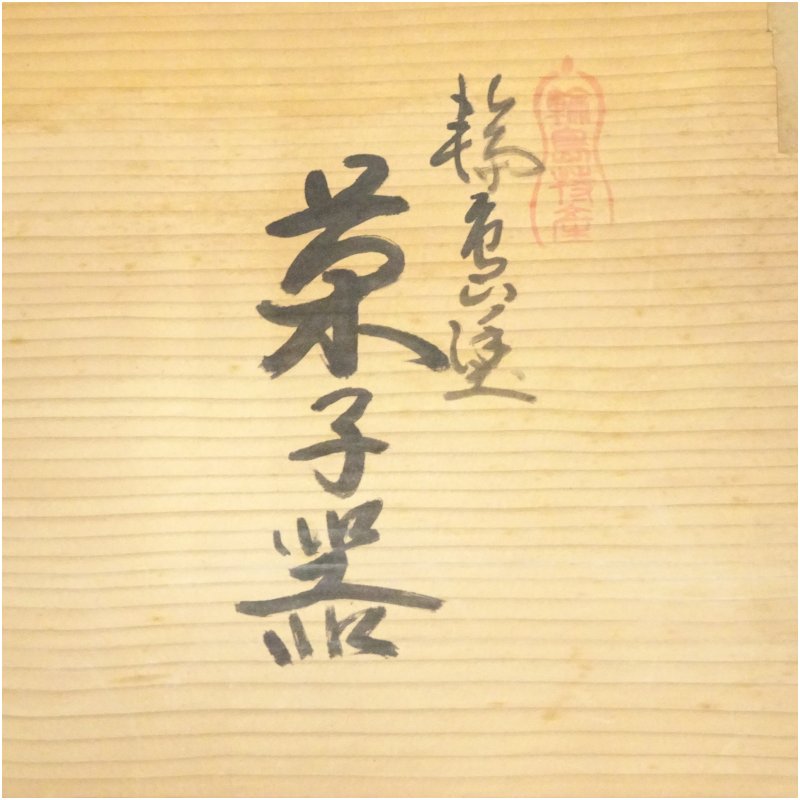 輪島特産
輪島塗
菓子器